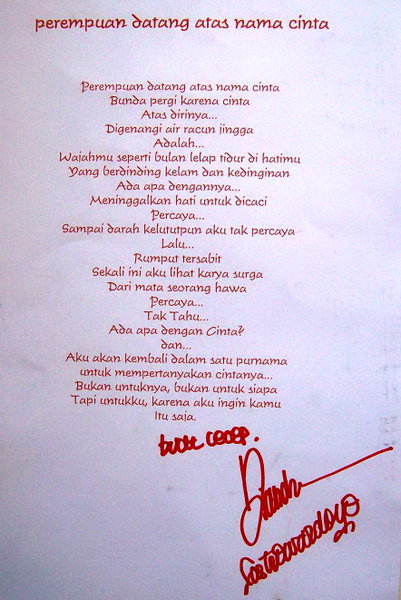 perempuan datang atas nama cinta
Perempuan datang atas nama cinta
Bunda pergi karena cinta
Atas dirinya...
Digenangi air racun jingga
Adalah...
Wajahmu seperti bulan lelap tidur di hatimu
Yang berdinding kelam dan kedinginan
Ada apa dengannya...
Meninggalkan hati untuk dicaci
Percaya...
Sampai darah kelututpun aku tak percaya
Lalu...
Rumput tersabit
Sekali ini aku lihat karya surga
Dari mata seorang hawa
Percaya...
Tak Tahu...
Ada apa dengan Cinta?
dan...
Aku akan kembali dalam satu purnama
untuk mempertanyakan cintanya...
Bukan untuknya, bukan untuk siapa
Tapi untukku, karena aku ingin kamu
Itu saja.
buat cecep.
Sastrowardoyo